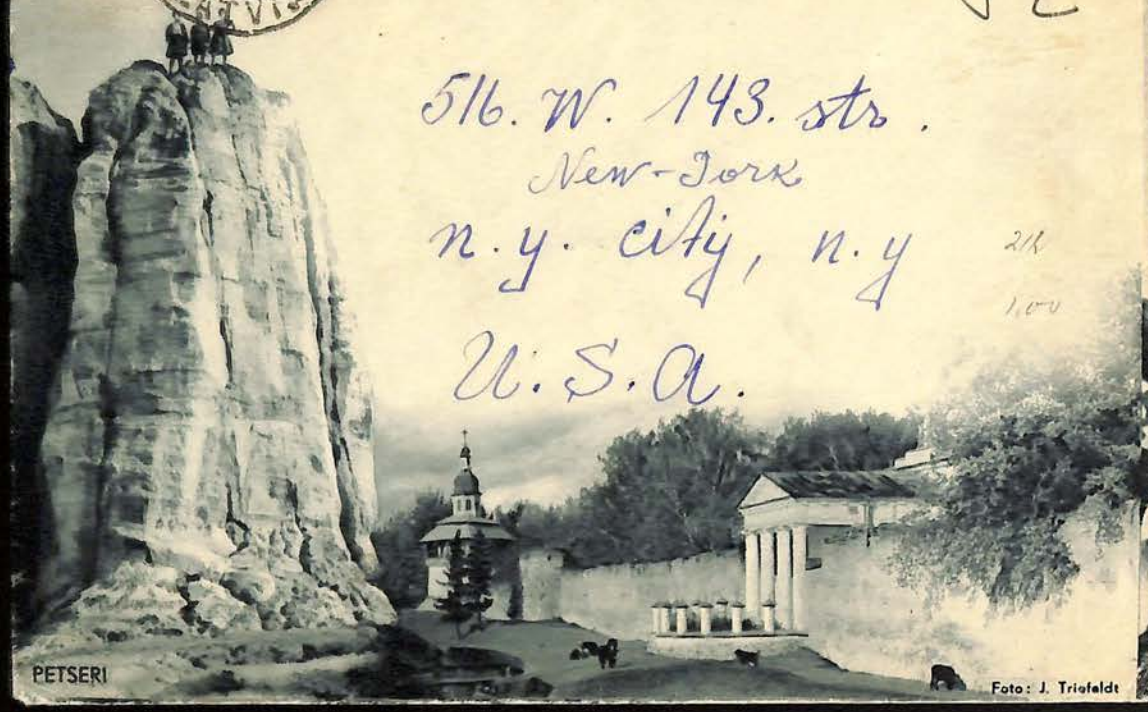 516. W. 143. str.
New-York
n.y. city, n.y
U.S.A.
1,00
PETSERI
Foto: J. Triefeldt